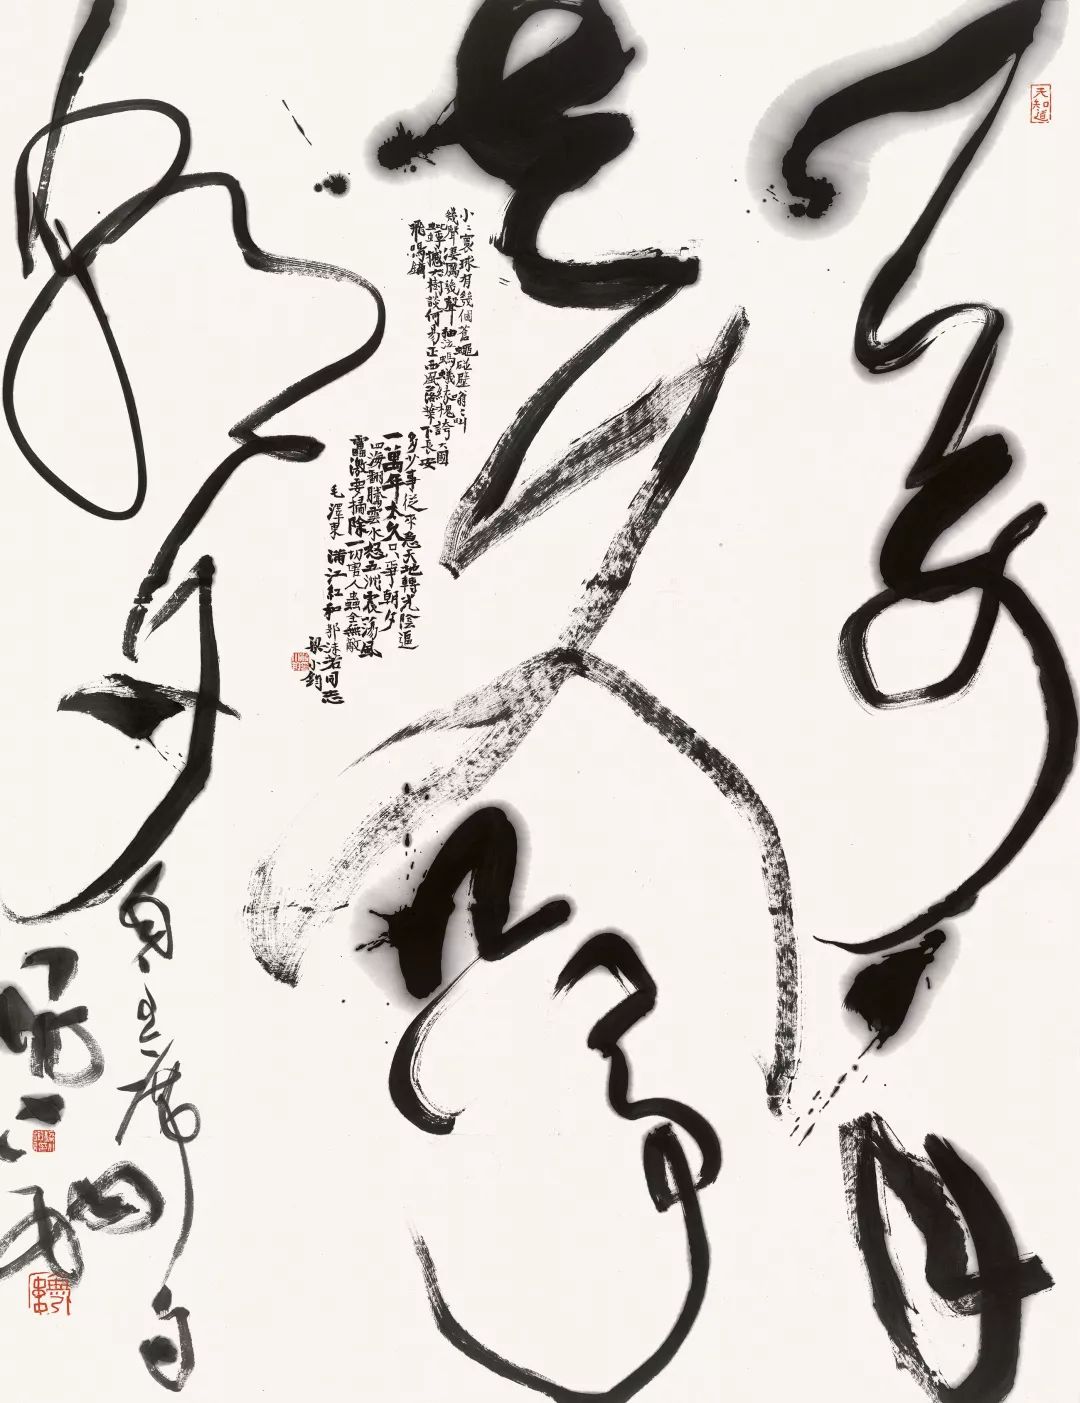 天知道
一萬年
太久只爭
朝夕
小〻寰球有幾個蒼蠅碰壁嗡〻叫
幾聲淒厲幾聲抽泣螞蟻緣槐誇大國
蚍蜉撼大樹談何易正西風落葉下長安
飛鳴鏑
多少事從來急天地轉光陰迫
一萬年太久只爭朝夕
四海翻騰雲水怒五洲震蕩風
雷激要掃除一切害人蟲全無敵
毛澤東 滿江紅和郭沫若同志
梁小鈞